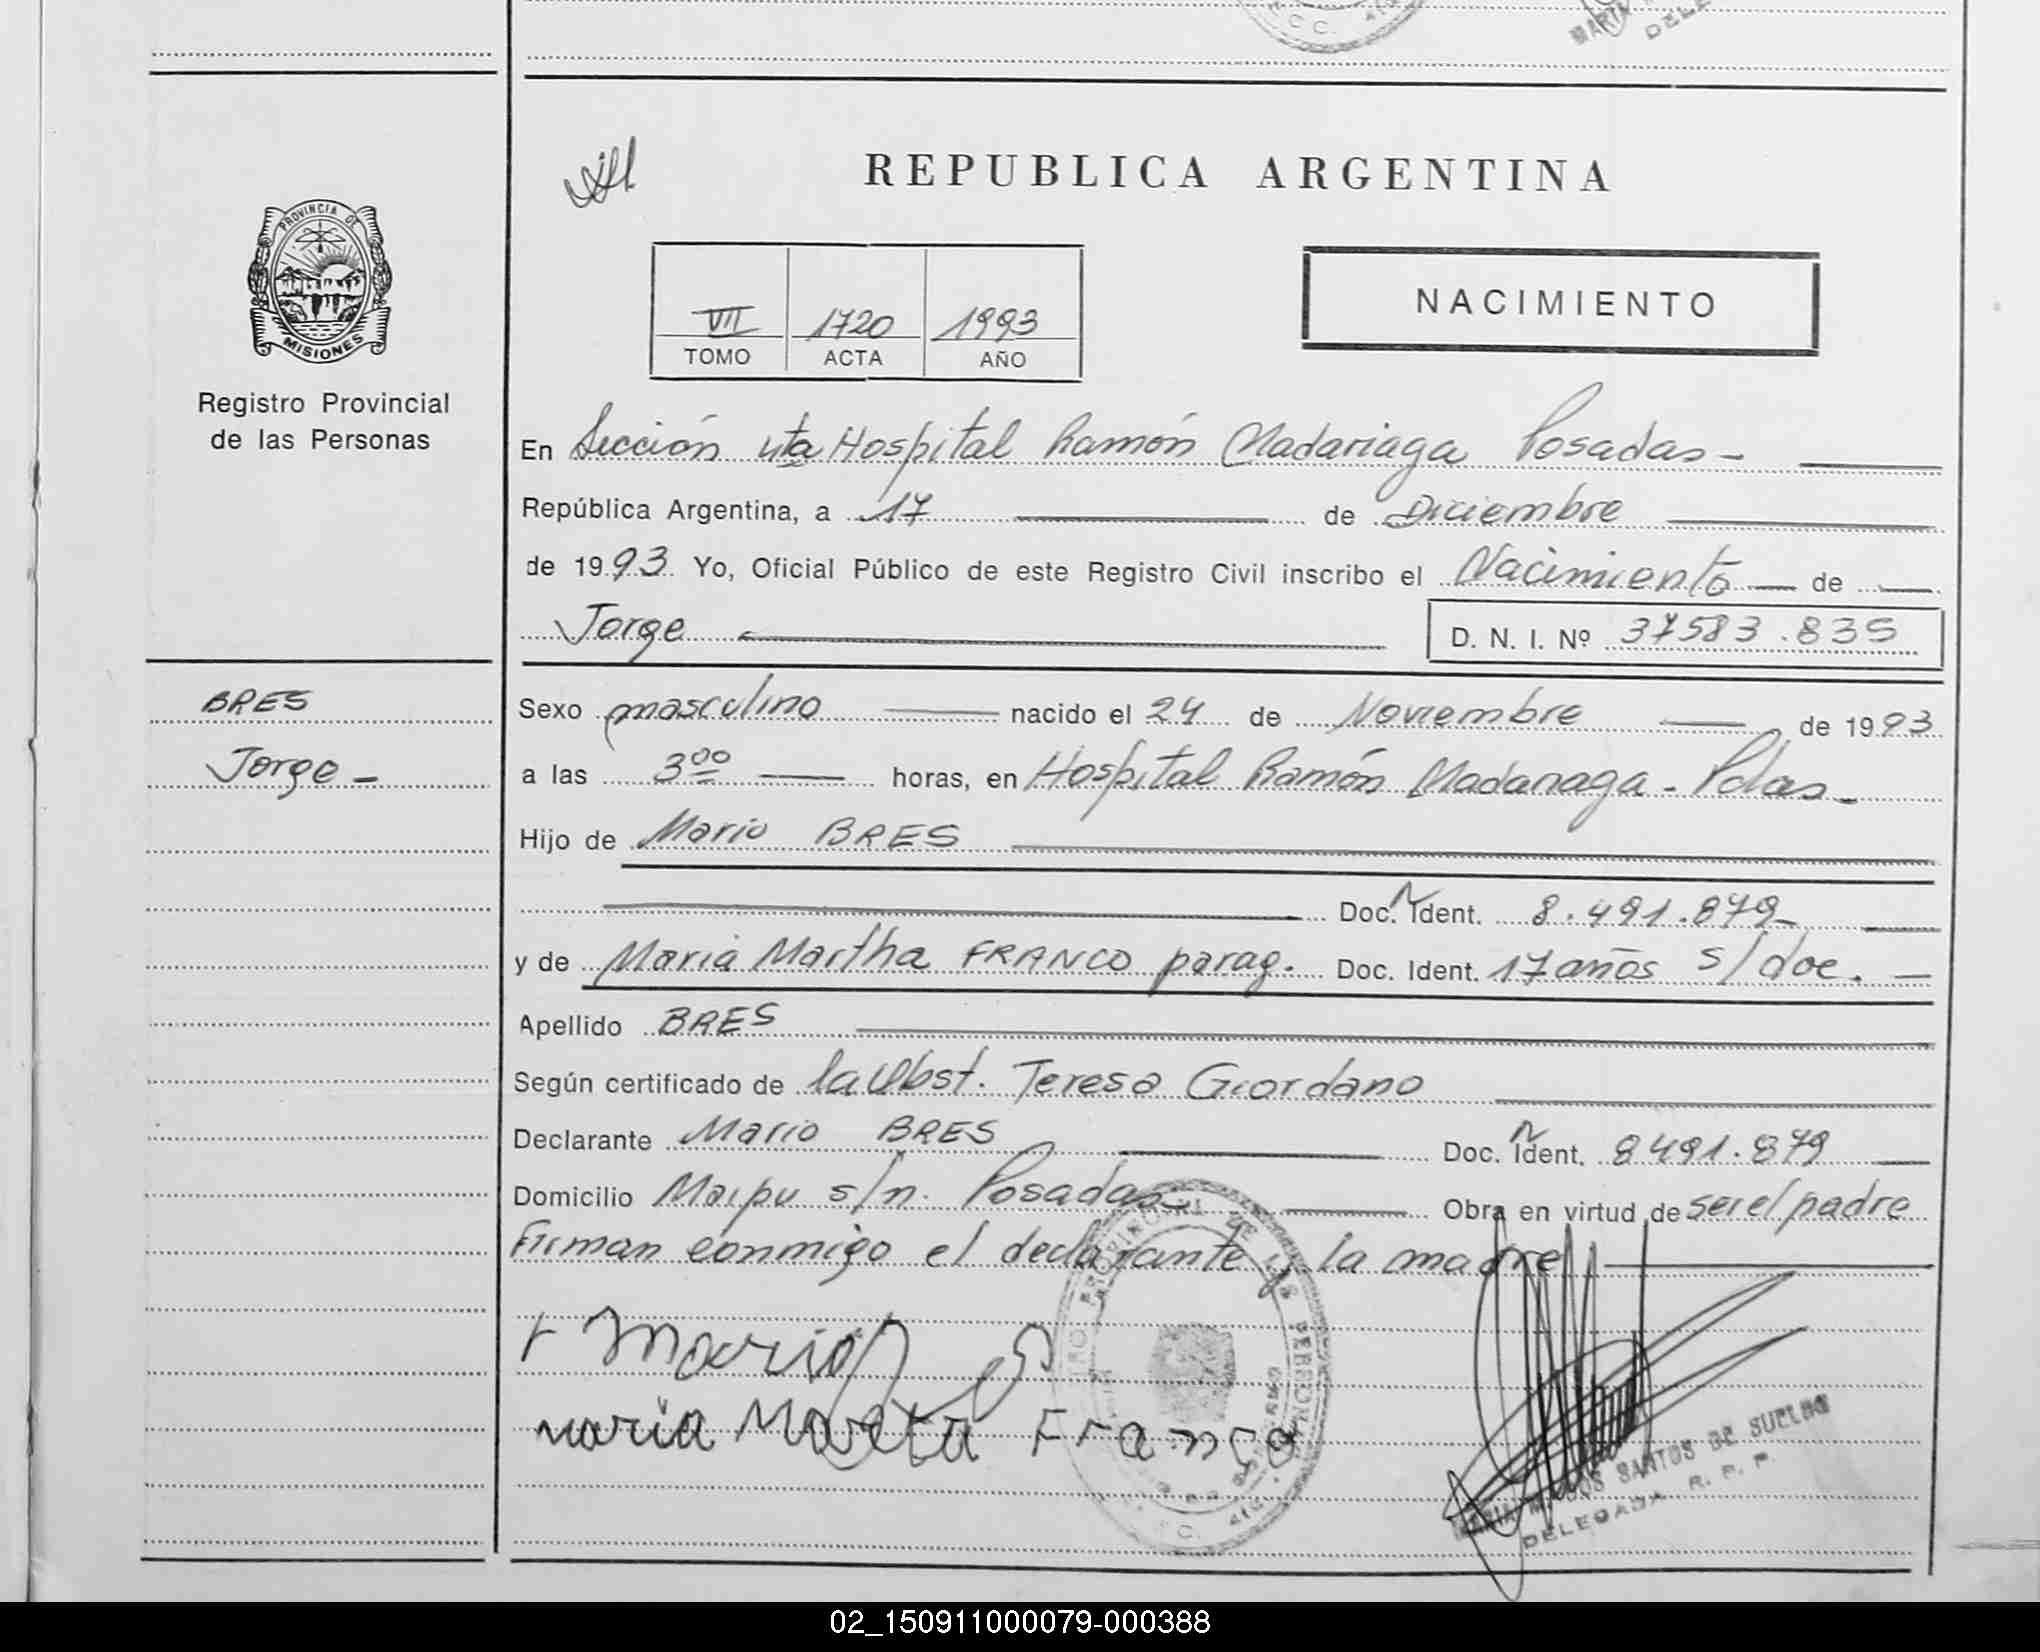 REPUBLICA ARGENTINA
PROVINCIA DE
MISIONES
Registro Provincial
de las Personas
VII 1720 1993
TOMO ACTA AÑO
NACIMIENTO
En Sección 4ta Hospital Ramón Madariaga Posadas -
República Argentina, a 17 de Diciembre
de 1993. Yo, Oficial Público de este Registro Civil inscribo el Nacimiento de
Jorge D. N. I. Nº 37583.835
BRES
Jorge -
Sexo masculino nacido el 24 de Noviembre de 1993
a las 3⁰⁰ horas, en Hospital Ramón Madariaga - Pdas -
Hijo de Mario BRES
Doc. N Ident. 8.491.879 -
y de Maria Martha FRANCO parag. Doc. Ident. 17 años s/doc. -
Apellido BRES
Según certificado de la Obst. Teresa Giordano
Declarante Mario BRES Doc. N Ident. 8491.879
Domicilio Maipu s/n. Posadas Obra en virtud de ser el padre
Firman conmigo el declarante y la madre
Mario
maria Marta Franco
SANTOS DE SUELDO
DELEGADA R. P. P.
02_150911000079-000388